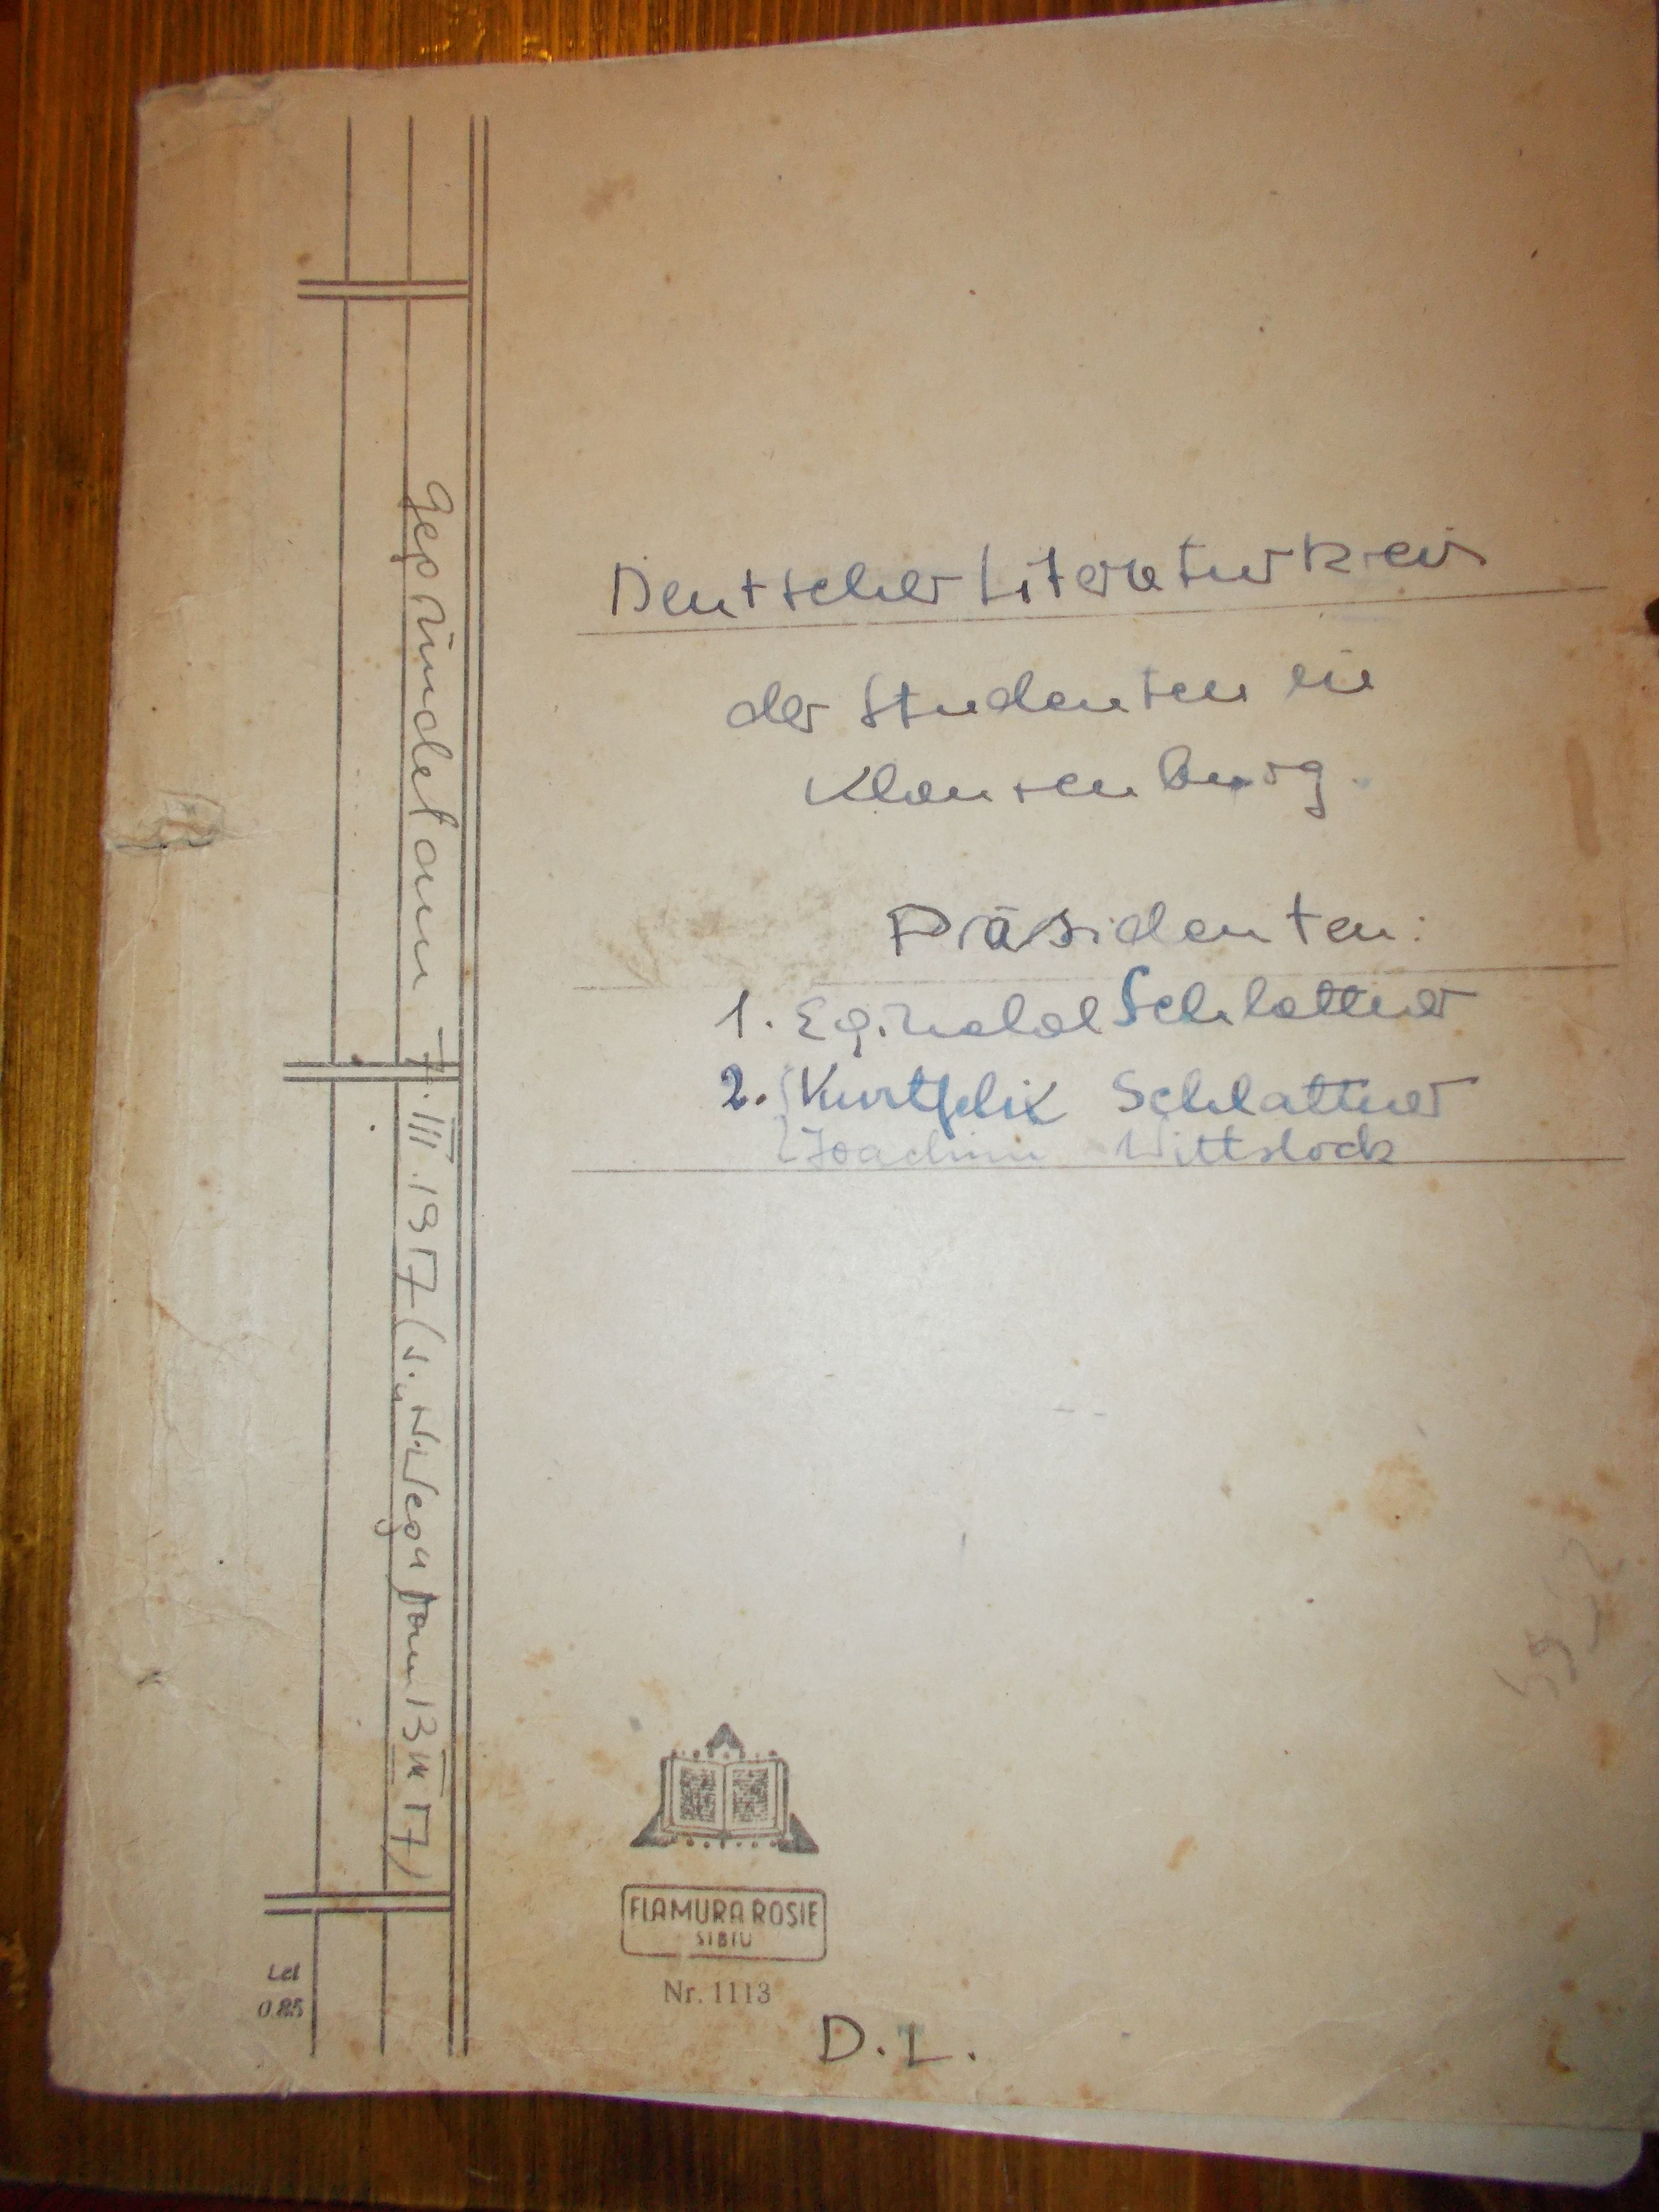 Deutscher Literaturkreis
der Studenten in
Klausenburg.
Präsidenten:
1. Eginald Schlattner
2. Kurtfelix Schlattner
Joachim Wittstock
gegründet am 7. III. 1957 (s. "N. Weg" vom 13 III 57)
FLAMURA ROSIE
SIBIU
Nr. 1113
Lei
0.85
D.L.